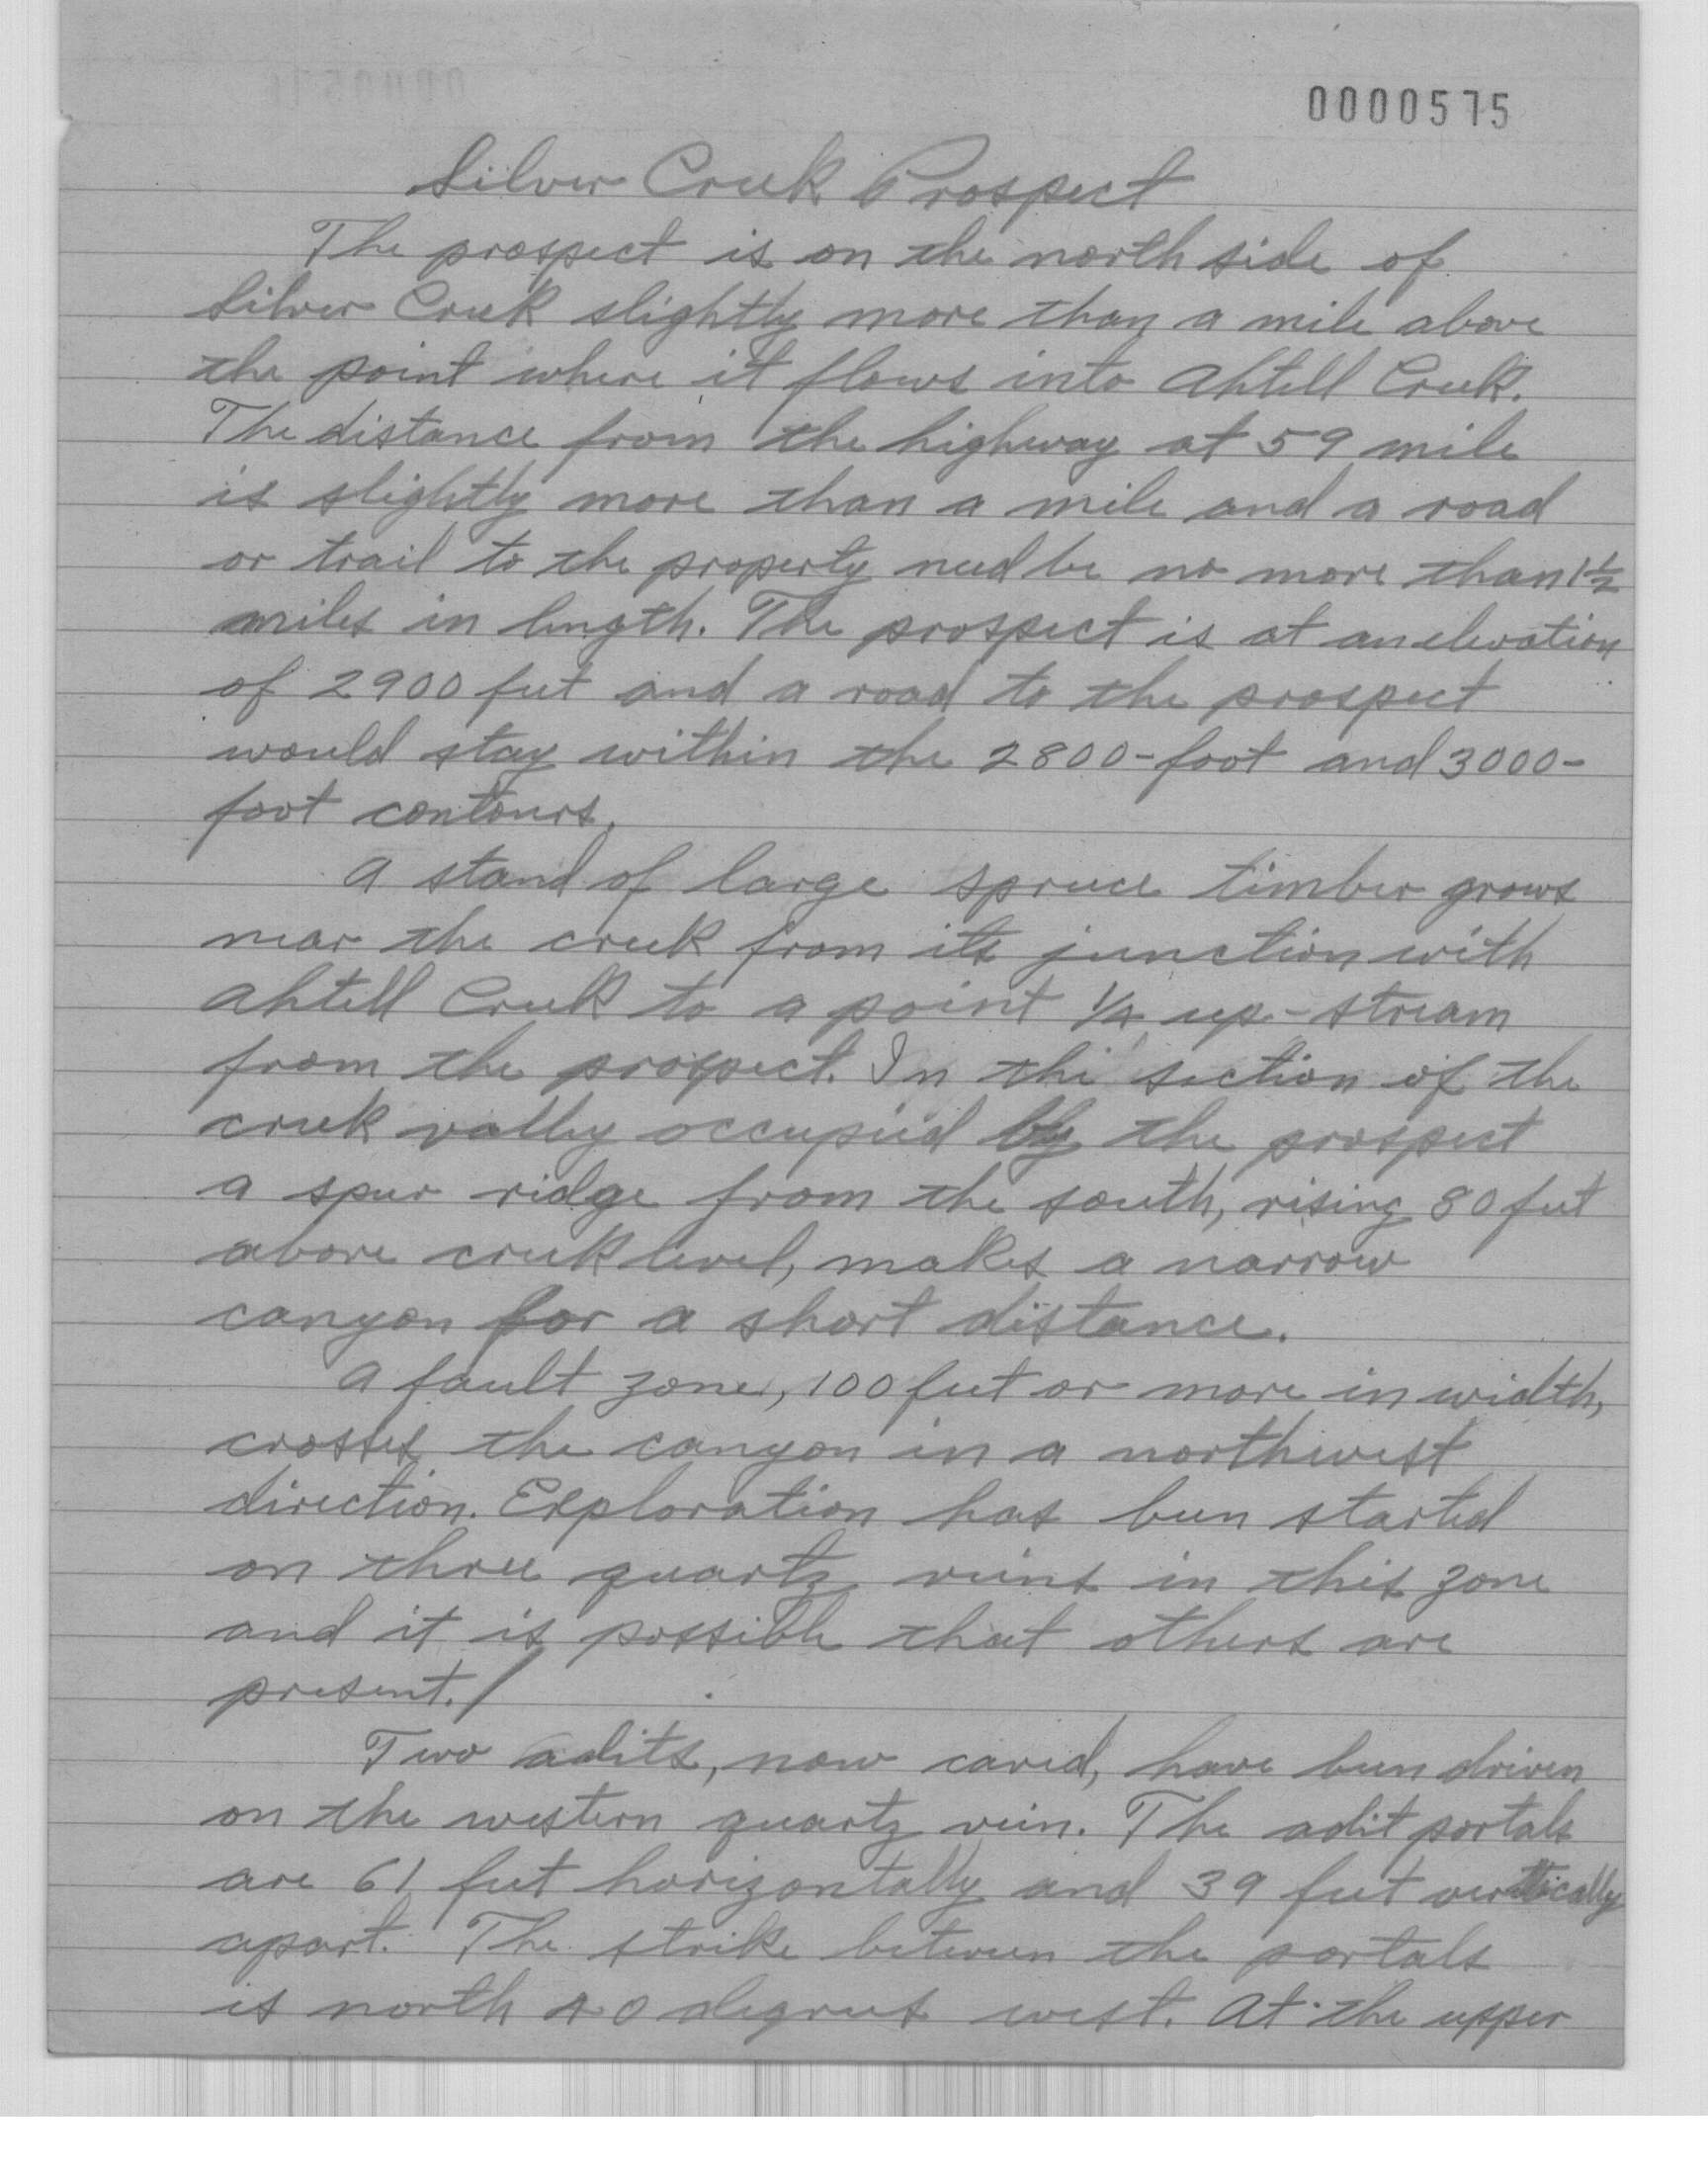 0000575
Silver Creek Prospect
The prospect is on the north side of
Silver Creek slightly more than a mile above
the point where it flows into Ahtell Creek.
The distance from the highway at 59 mile
is slightly more than a mile and a road
or trail to the property need be no more than 1½
miles in length. The prospect is at an elevation
of 2900 feet and a road to the prospect
would stay within the 2800-foot and 3000-
foot contours.
A stand of large spruce timber grows
near the creek from its junction with
Ahtell Creek to a point 1/4 up-stream
from the prospect. In the section of the
creek valley occupied by the prospect
a spur ridge from the south, rising 80 feet
above creek level, makes a narrow
canyon for a short distance.
A fault zone, 100 feet or more in width,
crosses the canyon in a northwest
direction. Exploration has been started
on three quartz veins in this zone
and it is possible that others are
present./
Two adits, now caved, have been driven
on the western quartz vein. The adit portals
are 61 feet horizontally and 39 feet vertically
apart. The strike between the portals
is north 40 degrees west. At the upper